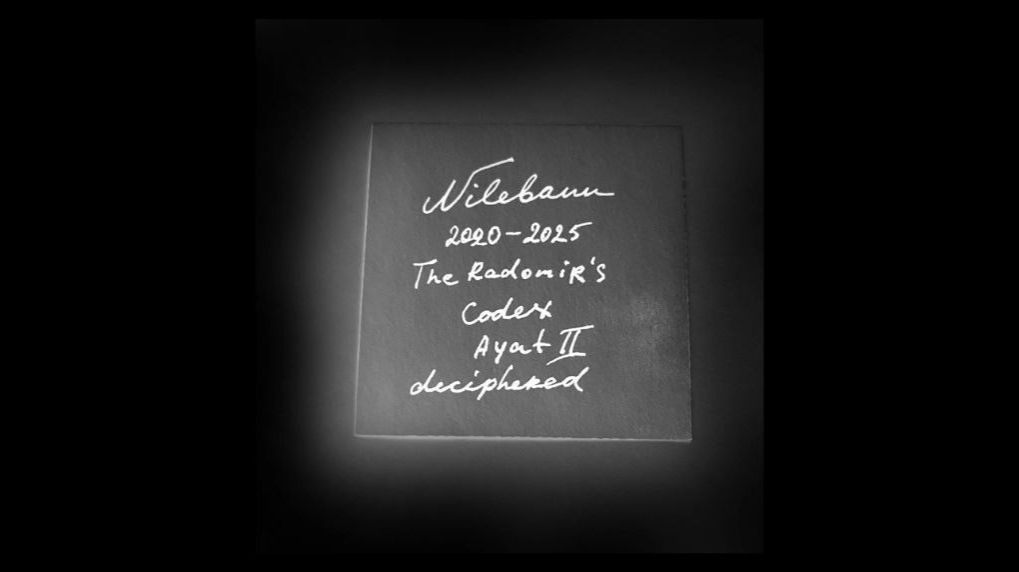 Nilebann
2020-2025
The Radomir's
Codex
Ayat II
deciphered